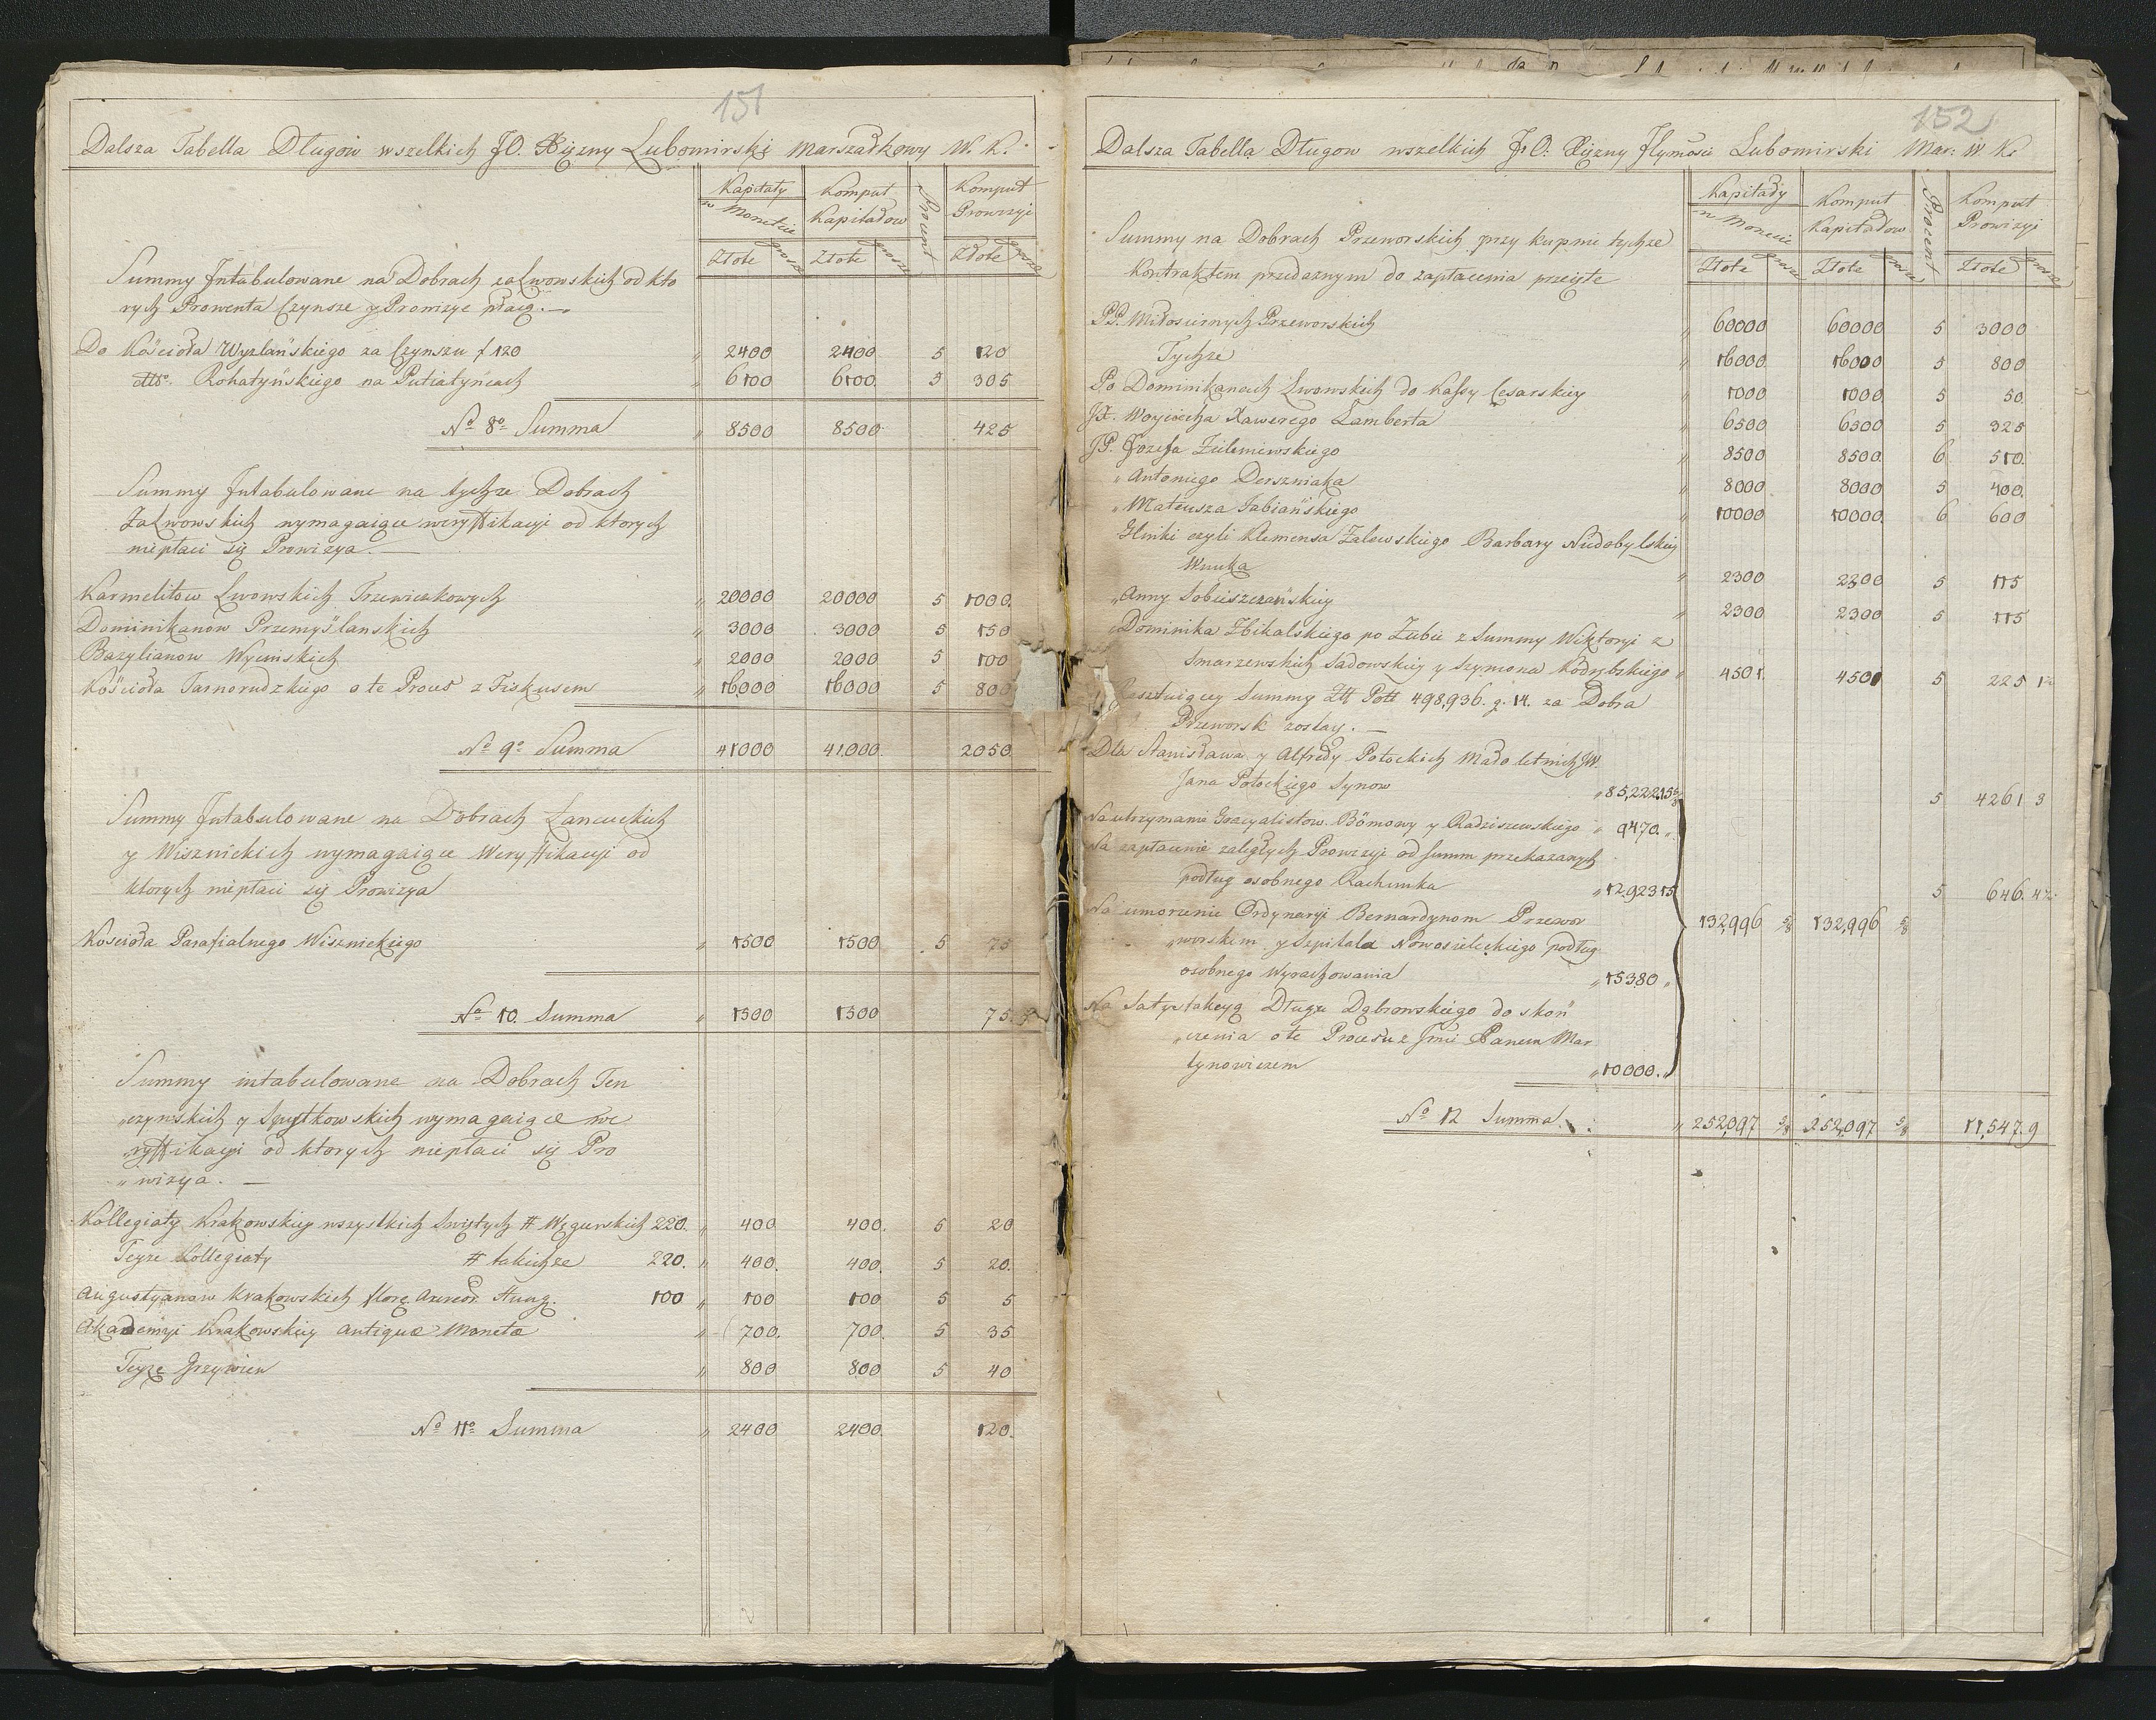 151
Dalsza Tabella Długow wszelkich JO. Xięzny Lubomirski Marszałkowy W. K.
Kapitały w Monecie Komput Kapitałow Procent Komput Prowizyi
Złote grosze Złote grosze Złote grosze
Summy Intabulowane na Dobrach zaLwowskich od kto
rych Prowenta Czynsze y Prowizye płacą.
Do Kościoła Wyzlańskiego za Czynszu f 120 " 2400 2400 5 120
Rohatyńskiego na Putiatyńcach " 6100 6100 5 305
No 8o Summa " 8500 8500 425
Summy Intabulowane na tychze Dobrach
ZaLwowskich wymagaiące weryffikacyi od ktorych
niepłaci się Prowizya.
Karmelitow Lwowskich Trzewiczkowych " 20000 20000 5 1000.
Dominikanow Przemyślanskich " 3000 3000 5 150
Bazylianow Wycinskich " 2000 2000 5 100
Kościoła Tarnorudzkiego o te Proces z Fiskusem " 16000 16000 5 800
No 9o Summa 41000 41.000. 2050.
Summy Intabulowane na Dobrach Lancuckich
y Wisznickich wymagaiące Weryffikacyi od
ktorych niepłaci się Prowizya
Kościoła Parafialnego Wisznickiego " 1500 1500 5 75
No 10. Summa " 1500 1500 75
Summy intabulowane na Dobrach Ten
"czynskich y Spytkowskich wymagaiące we
ryffikacyi od ktorych niepłaci się Pro
"wizya.
Kollegiaty Krakowskiey wszystkich Swiętych # Węgierskich 220. " 400 400. 5 20
Teyze Kollegiaty # takichze 220. " 400. 400. 5 20.
Augustyanow Krakowskich flore Aureor. Hung. 100 " 100 100 5 5
Akademyi Krakowskiey antiquæ Monetæ " 700. 700. 5 35
Teyze Grzywien " 800 800 5 40
No 11o Summa " 2400 2400. 120.
152
Dalsza Tabella Długow wszelkich JO. Xięzny JIymości Lubomirski Mar: W. K.
Kapitały w Monecie Komput Kapitałow Procent Komput Prowizyi
Złote grosze Złote grosze Złote grosze
Summy na Dobrach Przeworskich przy kupnie tychze
Kontraktem przedaznym do zapłacenia przeięte
PP. Miłosiernych Przeworskich " 60000 60000 5 3000
Tychze " 16000 16000 5 800
Po Dominikanach Lwowskich do Kassy Cesarskiey " 1000 1000 5 50
JX. Woyciecha Xawerego Lamberta " 6500 6500 5 325
JP. Jozefa Zieleniewskiego " 8500 8500. 6 510.
"Antoniego Derszniaka " 8000 8000 5 400.
"Mateusza Fabiańskiego " 10000 10000 6 600
Glinki czyli Klemensa Zalewskiego Barbary Niedobylskiey
Wnuka " 2300 2300 5 115
"Anny Sobieszczańskiey " 2300 2300 5 115
"Dominika Zbikalskiego po Zubie z Summy Wiktoryi z
Smarzewskich Sadowskiey y Szymona Kodrębskiego " 4501. 4501 5 225 1
Resztuiącey Summy Złł Poll 498,936. g. 14. za Dobra
Przeworsk zostay.
Dla Stanisława y Alfredy Potockich Mało letnich JW.
Jana Potockiego Synow "85,222,15 5/8 5 4261 3
Na utrzymanie Gracyalistow Bömowy y Radziszewskiego " 9470."
Na zapłacenie zaległych Prowizyi od summ przekazanych
podług osobnego Rachunku "12,923 15 5 646.
Na umorzenie Ordynaryi Bernardynom Przewor 132,996 5/8 132,996 5/8
"worskim y Szpitala Nowosieleckiego podług
osobnego Wyrachowania "15380 "
Na Satysfakcyą Długu Dąbrowskiego do skoń
"czenia o te Procesu z Jmć Panem Mar
tynowiczem "10000."
No 12 Summa. " 252,097 5/8 252,097 5/8 11,547. 9